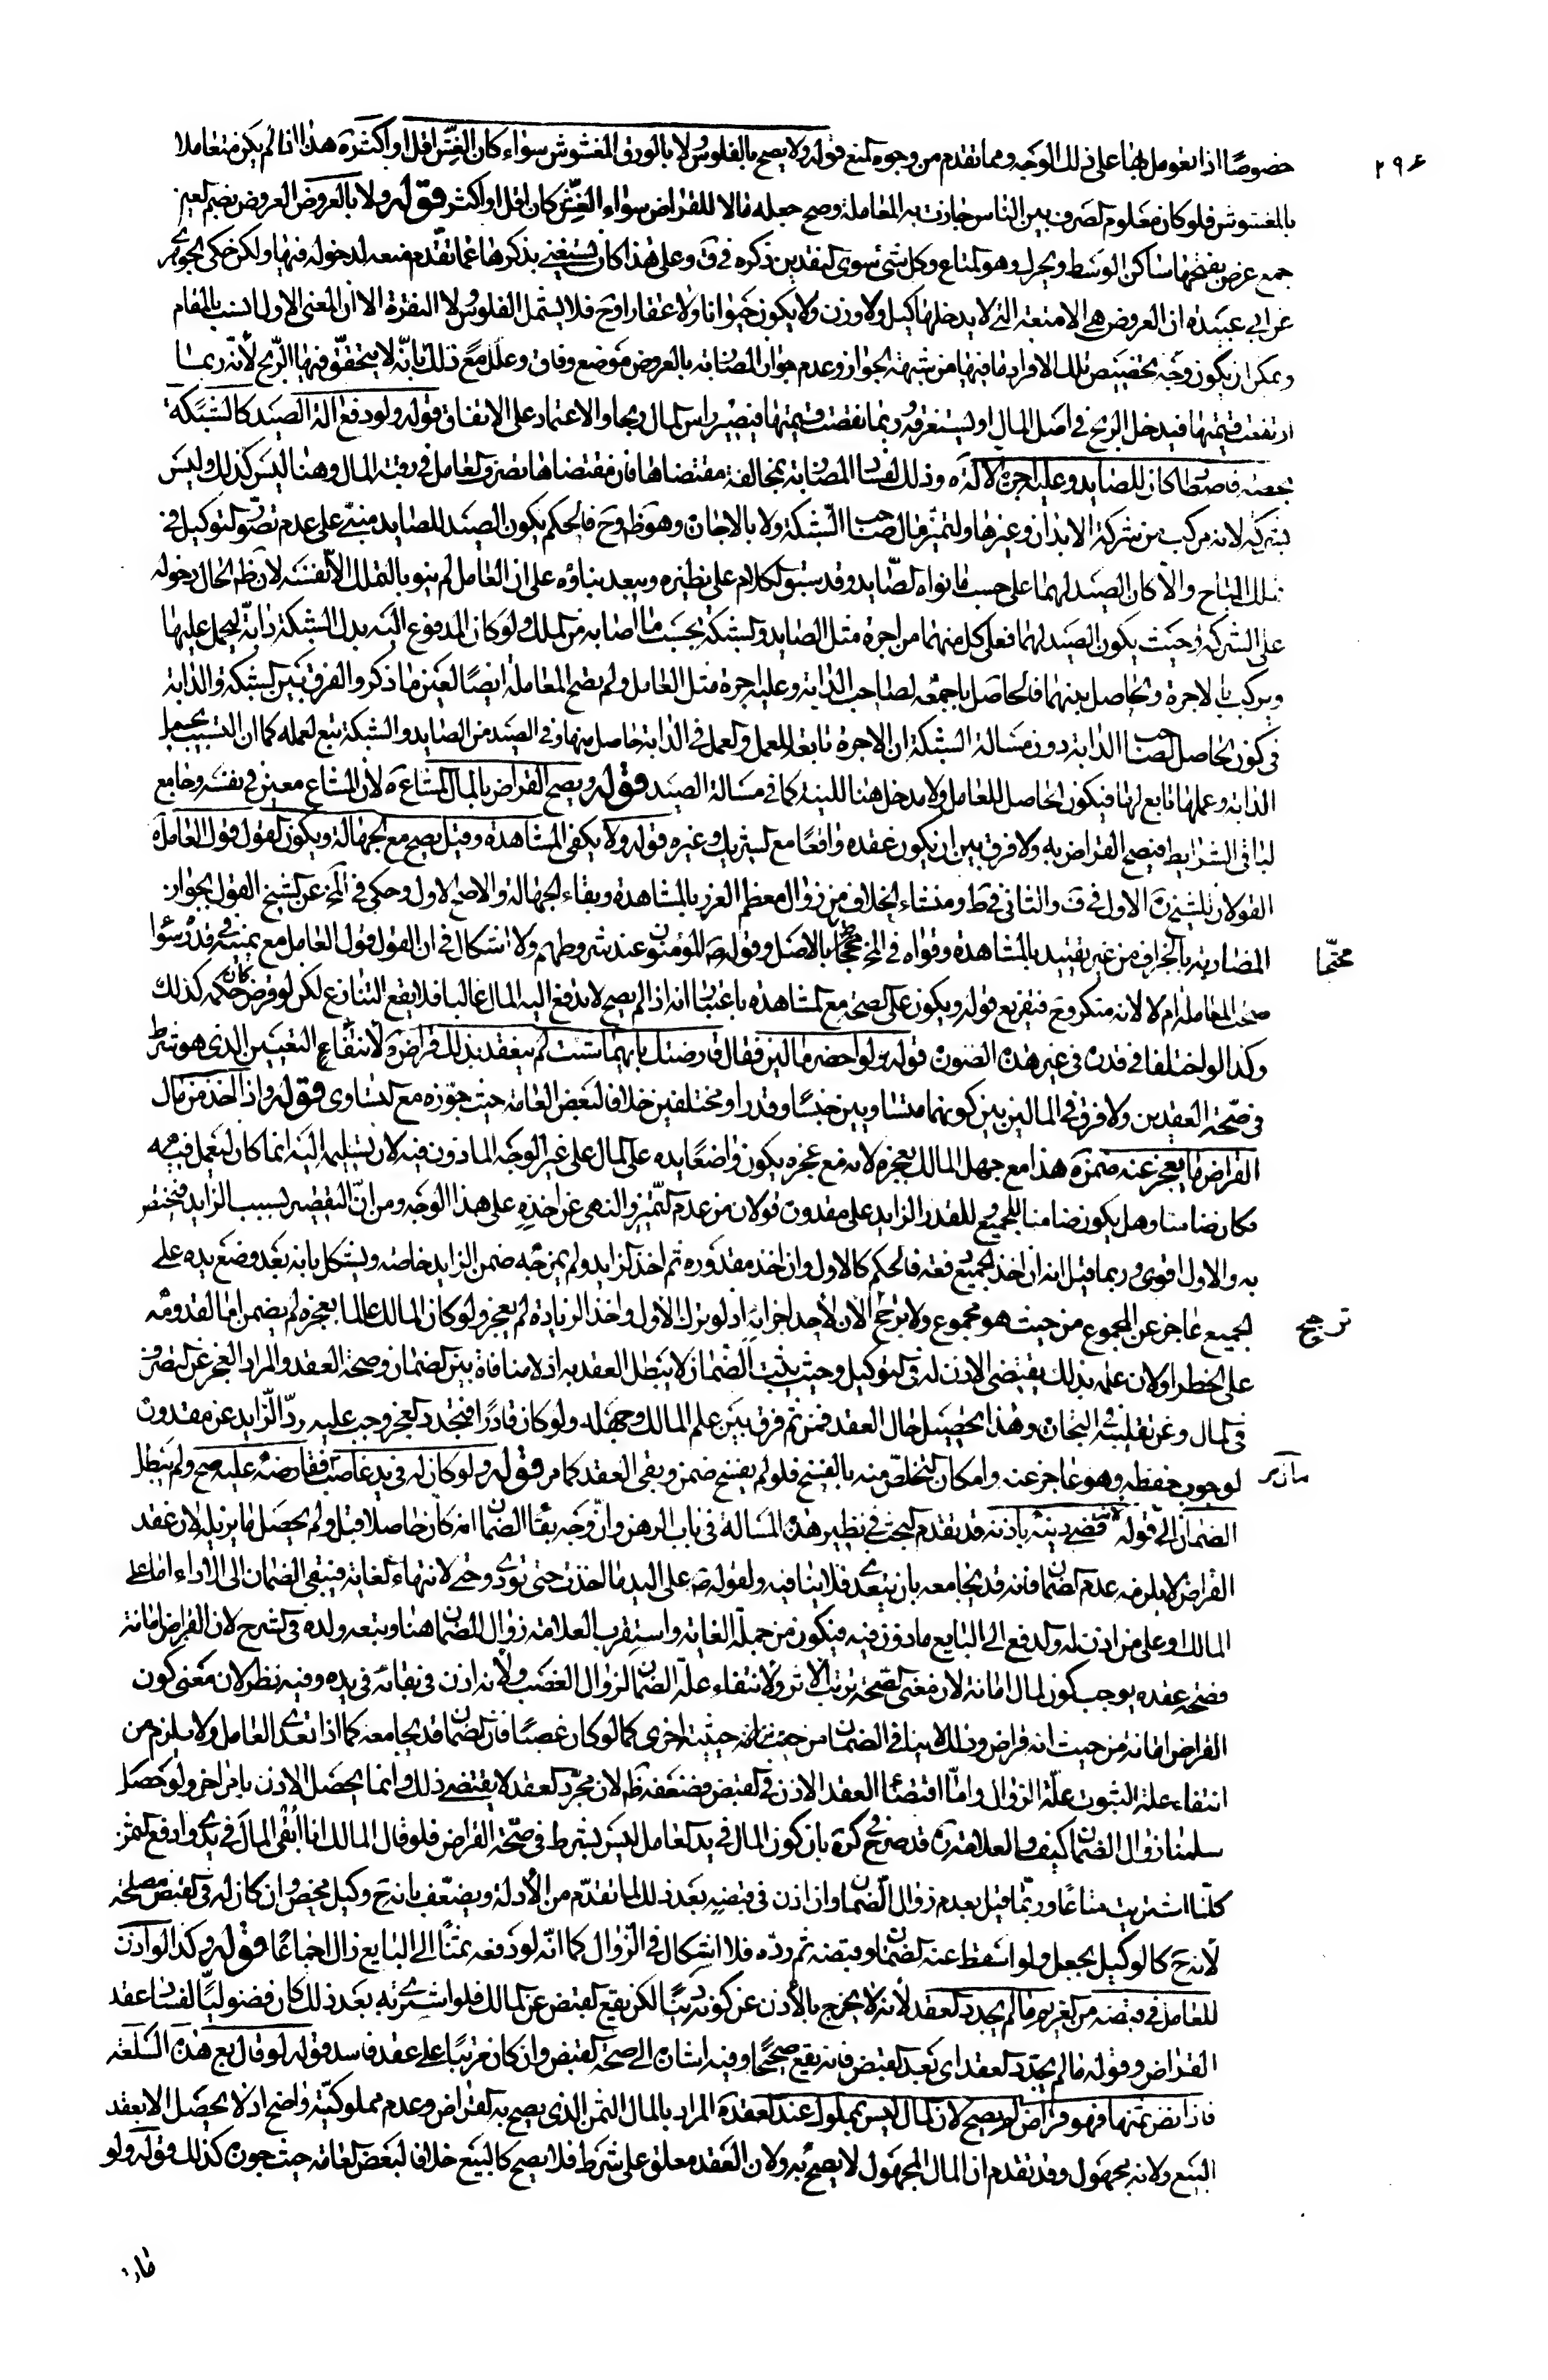 ٢٩٤
خصوصًا اذا تعومل بها على ذلك الوجه ومما تقدم من وجوه المنع قوله ولا يصح بالفلوس ولا بالورق المغشوش سواء كان الغش اقل او اكثر ه هذا اذا لم يكن متعاملا
بالمغشوش فلو كان معلوم الصرف بين الناس جازت به المعاملة وصح جعله مالا للقراض سواء الغش كان اقل او اكثر قوله ولا بالعروض العروض بضم العين
جمع عرض بفتحها ساكن الوسط ويحرك وهو المتاع وكل شئ سوى النقدين ذكره في ق وعلى هذا كان يستغنى بذكرها عما تقدم منعه لدخوله فيها ولكن حكى الجوهرى
عن ابي عبيدة ان العروض هي الامتعة التى لا يدخلها كيل ولا وزن ولا يكون حيوانا ولا عقارا وح فلا يشمل الفلوس لا النقرة الا ان المعنى الاول انسب بالمقام
ويمكن ان يكون وجه تخصيص تلك الافراد ما فيها من شبهة الجواز وعدم جواز المضاربة بالعروض موضع وفاق وعلل مع ذلك بانه لا يتحقق فيها الربح لانه ربما
ارتفعت قيمتها فيدخل الربح في اصل المال او يستغرقه وربما نقصت قيمتها فيصير راس المال ربحا والاعتماد على الاتفاق قوله ولو دفع الة الصيد كالشبكة
بحصة فاصطاد كان للصايد وعليه اجرة الالة ه وذلك لفساد المضاربة بمخالفة مقتضاها فان مقتضاها تصرف العامل في رقبة المال وهنا ليس كذلك وليس
بشركة لانه مركب من شركة الابدان وغيرها ولتميز مال صاحب الشبكة ولا بالاجارة وهو ظ وح فالحكم بكون الصيد للصايد مبنى على عدم تصور التوكيل في
تملك المباح والا كان الصيد لهما على حسب ما نواه الصايد وقد سبق الكلام على نظيره ويبعد بناؤه على ان العامل لم ينو بالتملك الا نفسه لان ظ الحال دخوله
على الشركة وحيث يكون الصيد لهما فعلى كل منهما من اجرة مثل الصايد والشبكة بحسب ما اصابه من الملك ولو كان المدفوع اليه بدل الشبكة دابة ليحمل عليها
ويركب بالاجرة والحاصل بينهما فالحاصل باجمعه لصاحب الدابة وعليه اجرة مثل العامل ولم يصح المعاملة ايضًا لعين ما ذكر والفرق بين الشبكة والدابة
في كون الحاصل لصاحب الدابة دون مسالة الشبكة ان الاجرة تابعة للعمل والعمل في الدابة حاصل منها وفي الصيد من الصايد والشبكة تبع لعمله كما ان التسبب بحمل
الدابة وعملها تابع لها فيكون الحاصل للعامل ولا مدخل هنا للنية كما في مسالة الصيد قوله ويصح القراض بالمال المشاع ه لان المشاع معين في نفسه وجامع
لباقى الشرايط فيصح القراض به ولا فرق بين ان يكون عقده واقعًا مع الشريك وغيره قوله ولا يكفى المشاهدة وقيل يصح مع الجهالة ويكون القول قول العامل ه
القولان للشيخ ره الاول في ف والثاني في ط ومنشاء الخلاف من زوال معظم الغرر بالمشاهدة وبقاء الجهالة والاصح الاول وحكى في المخ عن الشيخ القول بجواز
المضاربة بالجزاف من غير تقييد بالمشاهدة وقواه في المخ محتجا بالاصل وقوله ص المؤمنون عند شروطهم ولا اشكال في ان القول قول العامل مع يمينه في قدره سوا
محتجّا
صحت المعاملة ام لا لانه منكر وح فتفريع قوله ويكون على الصحة مع المشاهدة باعتبار انه اذا لم يصح لا يدفع اليه المال غالبا فلا يقع التنازع لكن لو فرض كان حكمه كذلك
وكذا لو اختلفا في قدره في غير هذه الصورة قوله ولو احضر مالين فقال قارضتك بايهما شئت لم ينعقد بذلك قراض ه لانتفاء التعيين الذي هو شرط
في صحة العقدين ولا فرق في المالين بين كونهما متساويين جنسًا وقدرا ومختلفين خلافا لبعض العامة حيث جوزه مع التساوى قوله واذا اخذ من مال
القراض ما يعجز عنه ضمن ه هذا مع جهل المالك بعجزه لانه مع عجزه يكون واضعًا يده على المال على غير الوجه الماذون فيه لان تسليمه اليه انما كان ليعمل فيه
فكان ضامنا وهل يكون ضامنا للجميع او للقدر الزايد على مقدوره قولان من عدم التميز والنهى عن اخذه على هذا الوجه ومن ان التقصير بسبب الزايد فيختص
به والاول اقوى وربما قيل انه ان اخذ الجميع دفعة فالحكم كالاول وان اخذ مقدوره ثم اخذ الزايد ولم يمزجه ضمن الزايد خاصة ويشكل بانه بعد وضع يده على
الجميع عاجز عن المجموع من حيث هو مجموع ولا ترجيح الان لاحد اجزائه اذ لو ترك الاول واخذ الزيادة لم يعجز ولو كان المالك عالما بعجزه لم يضمن اما لقدومه
ترجيح
على الخطر او لان علمه بذلك يقتضى الاذن له في التوكيل وحيث يثبت الضمان لا يبطل العقد به اذ لا منافاة بين الضمان وصحة العقد والمراد العجز عن التصرف
في المال وعن تقليبه في التجارة وهذا يحصل حال العقد فمن ثم فرق بين علم المالك وجهله ولو كان قادرًا فتجدد العجز وجب عليه ردّ الزايد عن مقدوره
لوجوب حفظه وهو عاجز عنه وامكان التخلص منه بالفسخ فلو لم يفسخ ضمن وبقى العقد كما مر قوله ولو كان له في يد غاصب مال فقارضه عليه صح ولم يبطل
مال
الضمان الى قوله لانه قضى دينه باذنه قد تقدم البحث في نظير هذه المسالة في باب الرهن وان وجه بقاء الضمان انه كان حاصلا قبل ولم يحصل ما يزيله لان عقد
القراض لا يلزمه عدم الضمان فانه قد يجامعه بان يتعدى فلا ينافيه ولقوله ص على اليد ما اخذت حتى تؤدى وحتى لانتهاء الغاية فيبقى الضمان الى الاداء اما على
المالك او على من اذن له والدفع الى البايع ماذون فيه فيكون من جملة الغاية واستقرب العلامة زوال الضمان هنا وتبعه ولده في الشرح لان القراض امانة
فصحة عقده يوجب كون المال امانة لان معنى الصحة ترتب الاثر ولانتفاء علة الضمان لزوال الغصب ولانه اذن في بقائه في يده وفيه نظر لان معنى كون
القراض امانة من حيث انه قراض وذلك لا ينافي الضمان من حيثية اخرى كما لو كان غصبًا فان الضمان قد يجامعه كما اذا تعدى العامل ولا يلزم من
انتفاء علة الثبوت علة الزوال واما اقتضاء العقد الاذن في القبض فضعفه ظ لان مجرد العقد لا يقتضى ذلك وانما يحصل الاذن بامر اخر ولو حصل
سلمنا زوال الضمان كيف والعلامة ره قد صرح في كرة بان كون المال في يد العامل ليس بشرط في صحة القراض فلو قال المالك انا ابقى المال في يدى وادفع الثمن
كلما اشتريت متاعًا وربما قيل بعدم زوال الضمان وان اذن في قبضه بعد ذلك لما تقدم من الادلة ويضعف بانه ح وكيل محض وان كان له في القبض مصلحة
لانه ح كالوكيل بجعل ولو اسقط عنه الضمان او قبضه ثم رده فلا اشكال في الزوال كما انه لو دفعه ثمنًا الى البايع زال اجماعًا قوله وكذا لو اذن
للعامل في قبضه من الغريم ما لم يجدد العقد لانه لا يخرج بالاذن عن كونه دينًا لكن يقع القبض عن المالك فلو اشترى به بعد ذلك كان فضوليًا لفساد عقد
القراض وقوله ما لم يجدد العقد اى بعد القبض فانه يقع صحيحًا وفيه اشارة الى صحة القبض وان كان مرتبًا على عقد فاسد قوله لو قال بع هذه السلعة
فاذا نض ثمنها فهو قراض لم يصح لان المال ليس بمملوك عند العقد ه المراد بالمال الثمن الذي يصح به القراض وعدم مملوكيته واضح اذ لا يحصل الا بعقد
البيع ولانه مجهول وقد تقدم ان المال المجهول لا يصح به ولان العقد معلق على شرط فلا يصح كالبيع خلافا لبعض العامة حيث جوزه كذلك قوله ولو